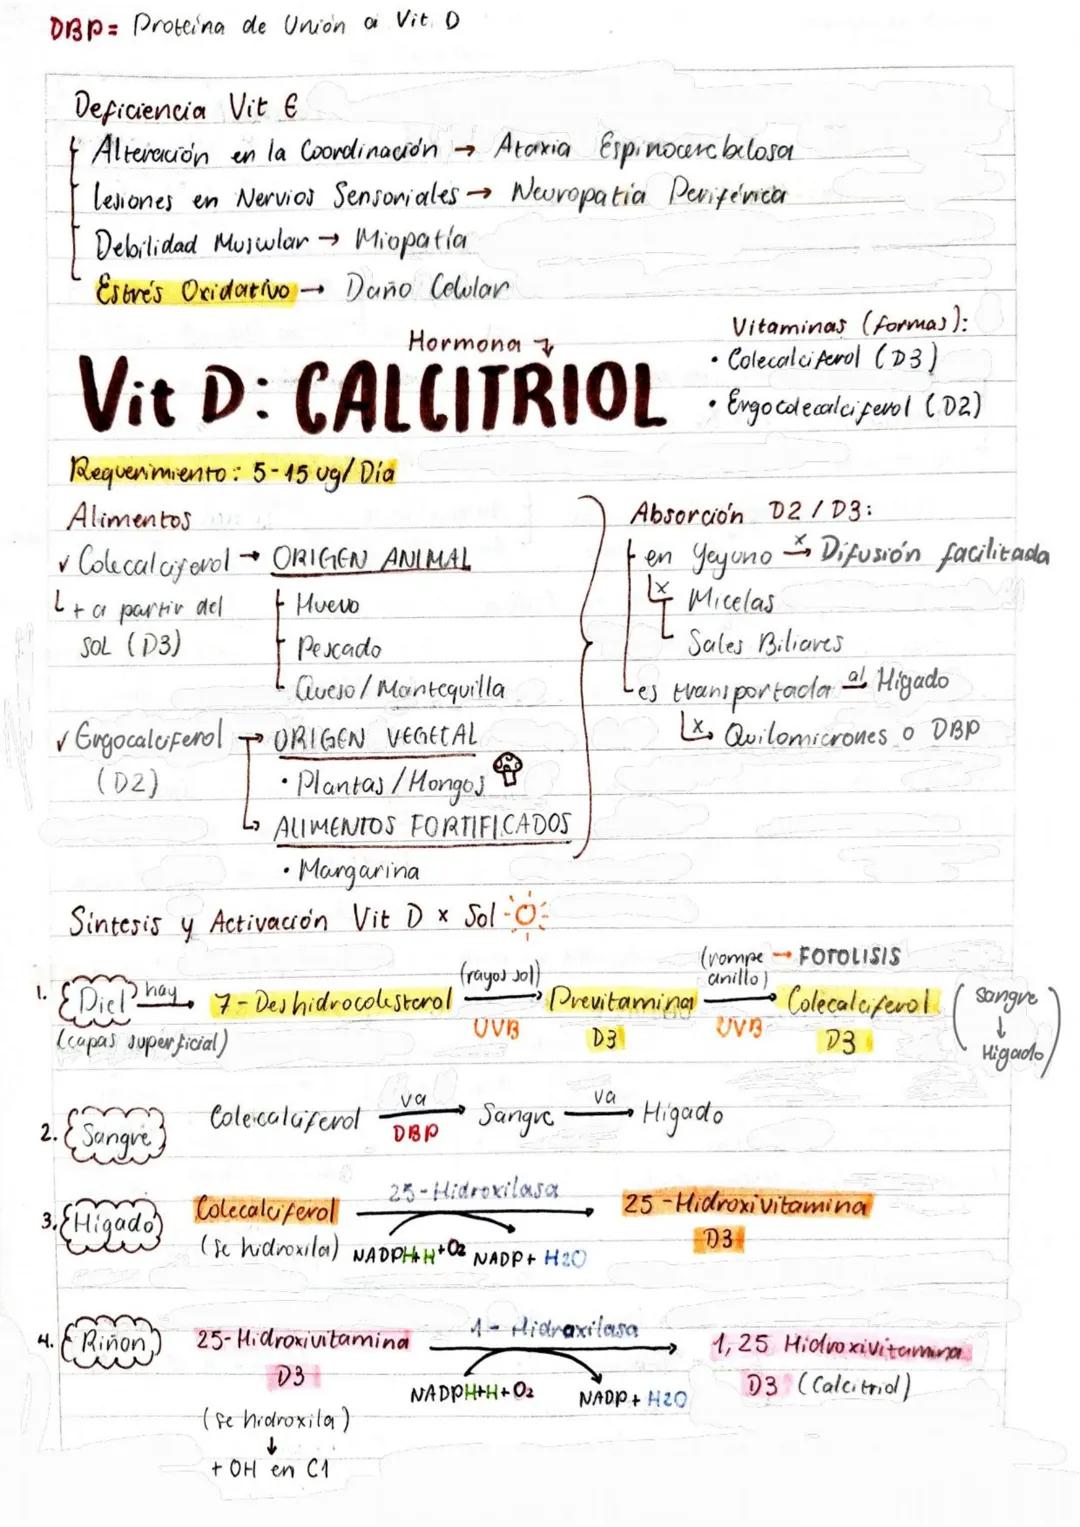 DBP= Proteína de Unión a Vit. D
Deficiencia Vit E
Alteración en la Coordinación → Ataxia Espinocerebelosa
lesiones en Nervios Sensoriales → Neuropatía Periférica
Debilidad Muscular → Miopatía
Estrés Oxidativo → Daño Celular
Hormona
Vit D: CALCITRIOL
Vitaminas (formas):
• Colecalciferol (D3)
• Ergocolecalciferol (D2)
Requerimiento: 5-15 ug/Día
Alimentos
✓ Colecalciferol → ORIGEN ANIMAL
+ a partir del
SOL (D3)
Huevo
Pescado
Queso/Mantequilla
✓ Ergocalciferol → ORIGEN VEGETAL
(D2)
• Plantas/Hongos
ALIMENTOS FORTIFICADOS
• Margarina
Absorción D2 / D3:
en Yeyuno x→ Difusión facilitada
x Micelas
Sales Biliares
es transportada al Hígado
x Quilomicrones o DBP
Síntesis y Activación Vit D x Sol
1. Piel hay → 7-Deshidrocolesterol (rayos sol) → UVB Previtamina D3 (rompe anillo) → FOTOLISIS UVB Colecalciferol D3 (Sangre ↓ Hígado)
(capas superficial)
2. Sangre Colecalciferol va → DBP Sangre va → Hígado
3. Hígado Colecalciferol 25-Hidroxilasa → 25-Hidroxivitamina D3
(se hidroxila) NADPH+H+O2 NADP+ H2O
4. Riñon 25-Hidroxivitamina D3 1-Hidroxilasa → 1,25 Hidroxivitamina D3 (Calcitriol)
NADPH+H+O2 NADP+ H2O
(se hidroxila)
↓
+ OH en C1